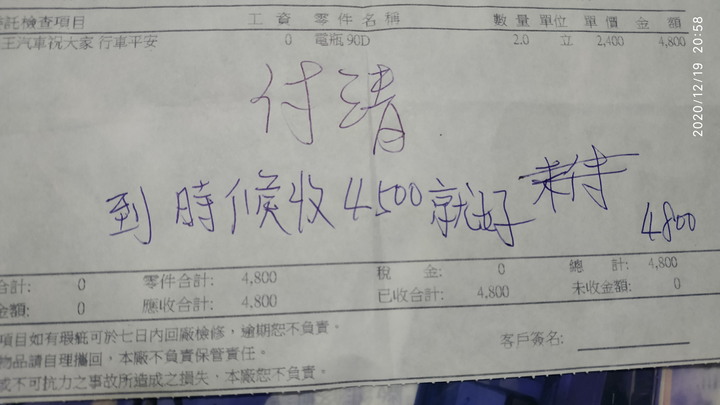 託檢查項目 工資 零件名稱 數量 單位 單價 金額
王汽車祝大家 行車平安 0 電瓶 90D 2.0 立 2,400 4,800
付清
到時候收4500就好 未付
4800
合計: 0 零件合計: 4,800 稅金: 0 總計: 4,800
金額: 0 應收合計: 4,800 已收合計: 4,800 未收金額: 0
項目如有瑕疵可於七日內回廠檢修，逾期恕不負責。
物品請自理攜回，本廠不負責保管責任。
或不可抗力之事故所造成之損失，本廠恕不負責。
客戶簽名:
2020/12/19 20:58